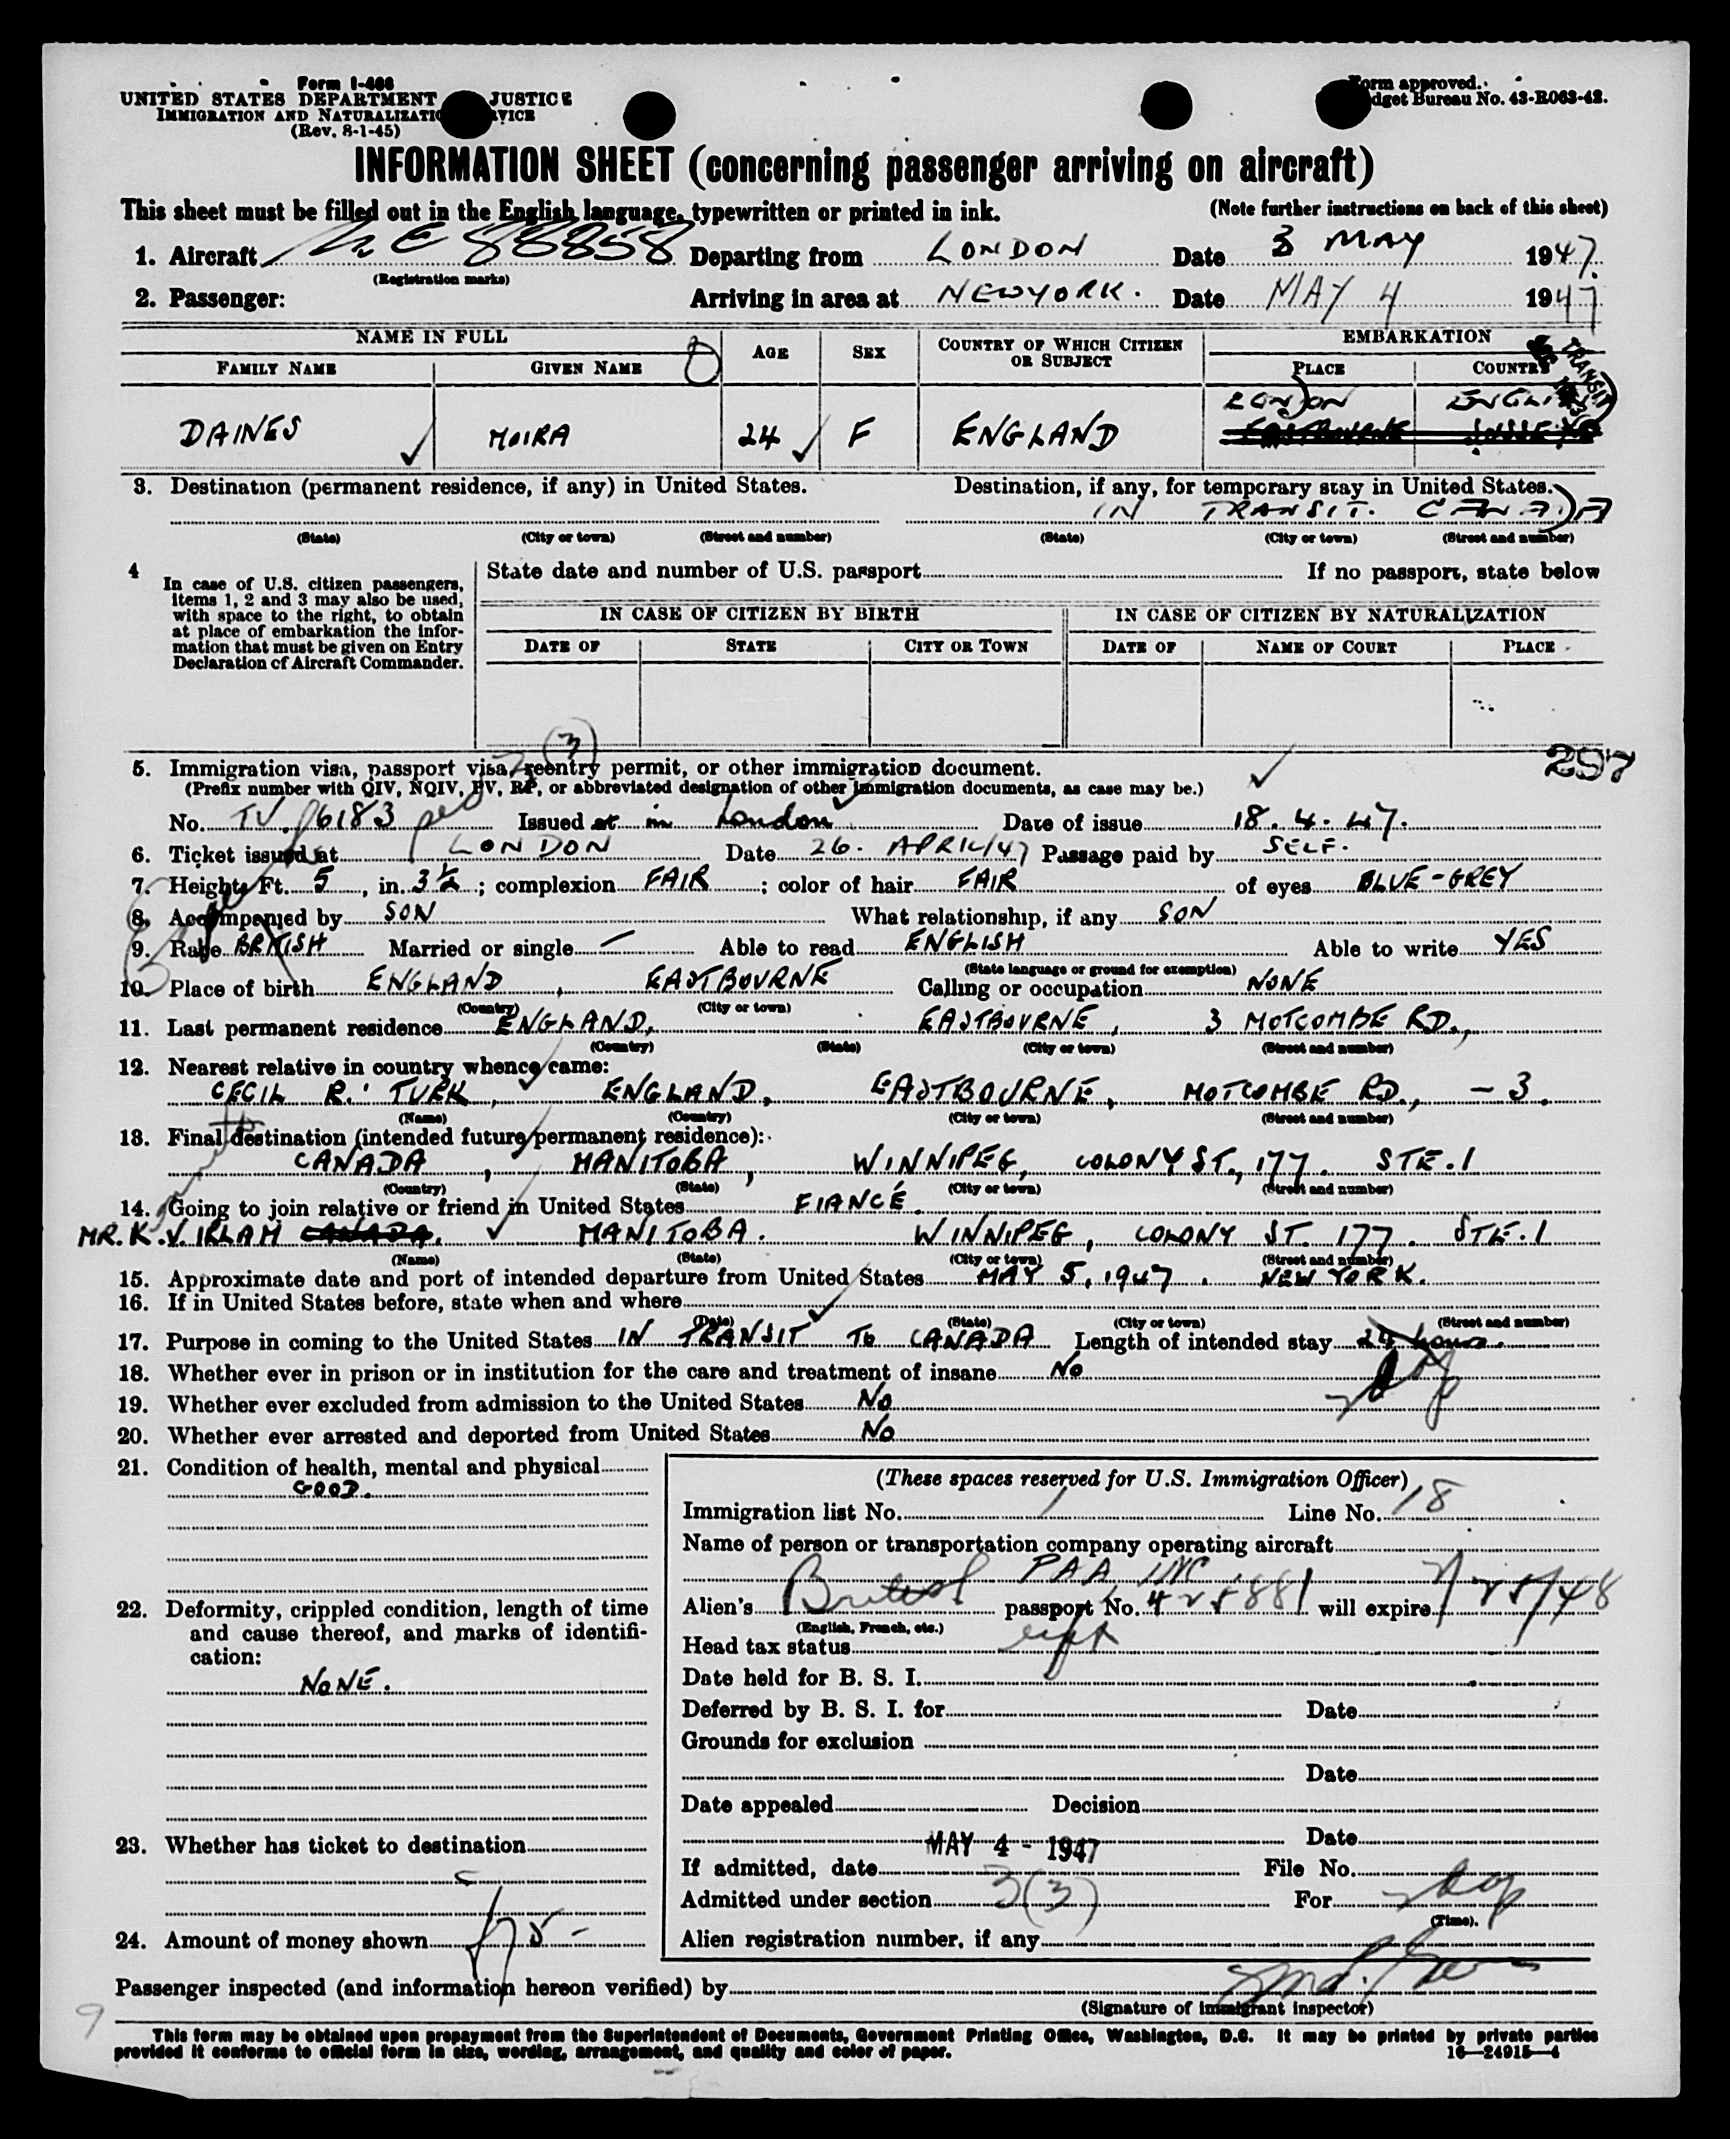 Form I-466
UNITED STATES DEPARTMENT JUSTICE
IMMIGRATION AND NATURALIZATION SERVICE
(Rev. 8-1-45)
Form approved.
Budget Bureau No. 43-R063-42.
INFORMATION SHEET (concerning passenger arriving on aircraft)
This sheet must be filled out in the English language, typewritten or printed in ink. (Note further instructions on back of this sheet)
1. Aircraft 88858 Departing from LONDON Date 3 MAY 1947.
(Registration marks)
2. Passenger: Arriving in area at NEWYORK. Date MAY 4 1947
NAME IN FULL AGE SEX COUNTRY OF WHICH CITIZEN OR SUBJECT EMBARKATION
FAMILY NAME GIVEN NAME PLACE COUNTRY
TRANSIT
LONDON ENGLAND
DAINES MOIRA 24 F ENGLAND EASTBOURNE SUSSEX
3. Destination (permanent residence, if any) in United States. Destination, if any, for temporary stay in United States.
IN TRANSIT. CANADA
(State) (City or town) (Street and number) (State) (City or town) (Street and number)
4 In case of U.S. citizen passengers, items 1, 2 and 3 may also be used, with space to the right, to obtain at place of embarkation the information that must be given on Entry Declaration of Aircraft Commander.
State date and number of U.S. passport If no passport, state below
IN CASE OF CITIZEN BY BIRTH IN CASE OF CITIZEN BY NATURALIZATION
DATE OF STATE CITY OR TOWN DATE OF NAME OF COURT PLACE
3(3)
297
5. Immigration visa, passport visa, reentry permit, or other immigration document.
(Prefix number with QIV, NQIV, PV, RP, or abbreviated designation of other immigration documents, as case may be.)
No. TV. 6183 Issued at in London Date of issue 18. 4. 47.
6. Ticket issued at LONDON Date 26. APRIL/47 Passage paid by SELF.
7. Height, Ft. 5, in. 3½; complexion FAIR; color of hair FAIR of eyes BLUE-GREY
8. Accompanied by SON What relationship, if any SON
9. Race BRITISH Married or single — Able to read ENGLISH Able to write YES
(State language or ground for exemption)
10. Place of birth ENGLAND, EASTBOURNE Calling or occupation NONE
(Country) (City or town)
11. Last permanent residence ENGLAND, EASTBOURNE, 3 MOTCOMBE RD.,
(Country) (State) (City or town) (Street and number)
12. Nearest relative in country whence came:
CECIL R. TURK, ENGLAND, EASTBOURNE, MOTCOMBE RD., - 3.
(Name) (Country) (City or town) (Street and number)
13. Final destination (intended future permanent residence):
CANADA, MANITOBA, WINNIPEG, COLONY ST., 177. STE.1
(Country) (State) (City or town) (Street and number)
14. Going to join relative or friend in United States FIANCÉ.
MR. K.V. IRLAM CANADA. MANITOBA. WINNIPEG, COLONY ST. 177. STE.1
(Name) (State) (City or town) (Street and number)
15. Approximate date and port of intended departure from United States MAY 5, 1947. NEW YORK.
16. If in United States before, state when and where
(Date) (State) (City or town) (Street and number)
17. Purpose in coming to the United States IN TRANSIT TO CANADA Length of intended stay 24 hours.
18. Whether ever in prison or in institution for the care and treatment of insane NO
19. Whether ever excluded from admission to the United States NO
20. Whether ever arrested and deported from United States NO
21. Condition of health, mental and physical
GOOD.
22. Deformity, crippled condition, length of time
and cause thereof, and marks of identifi-
cation:
NONE.
23. Whether has ticket to destination
24. Amount of money shown 75-
(These spaces reserved for U.S. Immigration Officer)
Immigration list No. 1 Line No. 18
Name of person or transportation company operating aircraft
PAA INC
Alien's British passport No. 425881 will expire
(English, French, etc.)
Head tax status
Date held for B. S. I.
Deferred by B. S. I. for Date
Grounds for exclusion
Date
Date appealed Decision
Date
MAY 4 - 1947
If admitted, date File No.
Admitted under section 3(3) For
(Time).
Alien registration number, if any
Passenger inspected (and information hereon verified) by
(Signature of immigrant inspector)
9
This form may be obtained upon prepayment from the Superintendent of Documents, Government Printing Office, Washington, D.C. It may be printed by private parties
provided it conforms to official form in size, wording, arrangement, and quality and color of paper. 16—24915-4